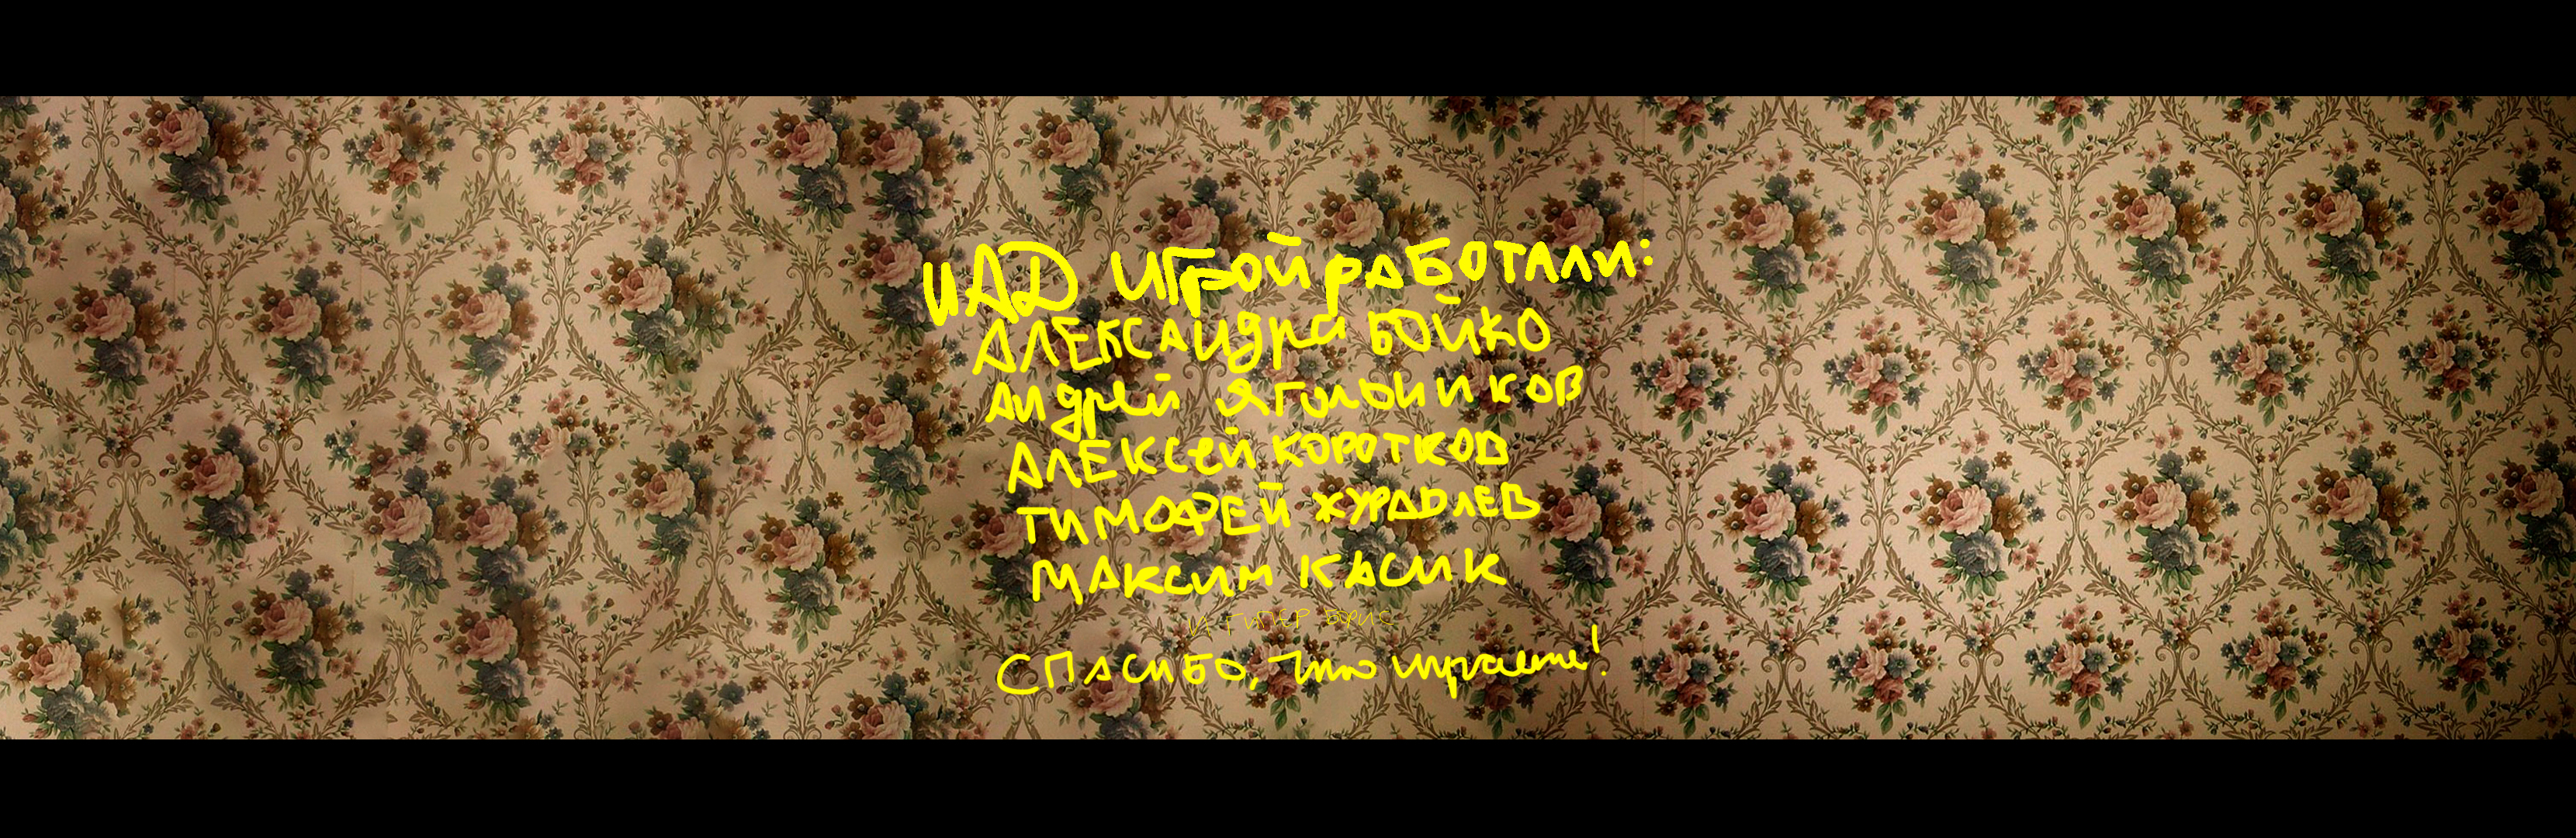 НАД ИГРОЙ РАБОТАЛИ:
АЛЕКСАНДРА БОЙКО
АНДРЕЙ ЯГОЛЬНИКОВ
АЛЕКСЕЙ КОРОТКОВ
ТИМОФЕЙ ЖУРАВЛЕВ
МАКСИМ КАСИК
И ГИПЕР БОРИС
СПАСИБО, что играете!